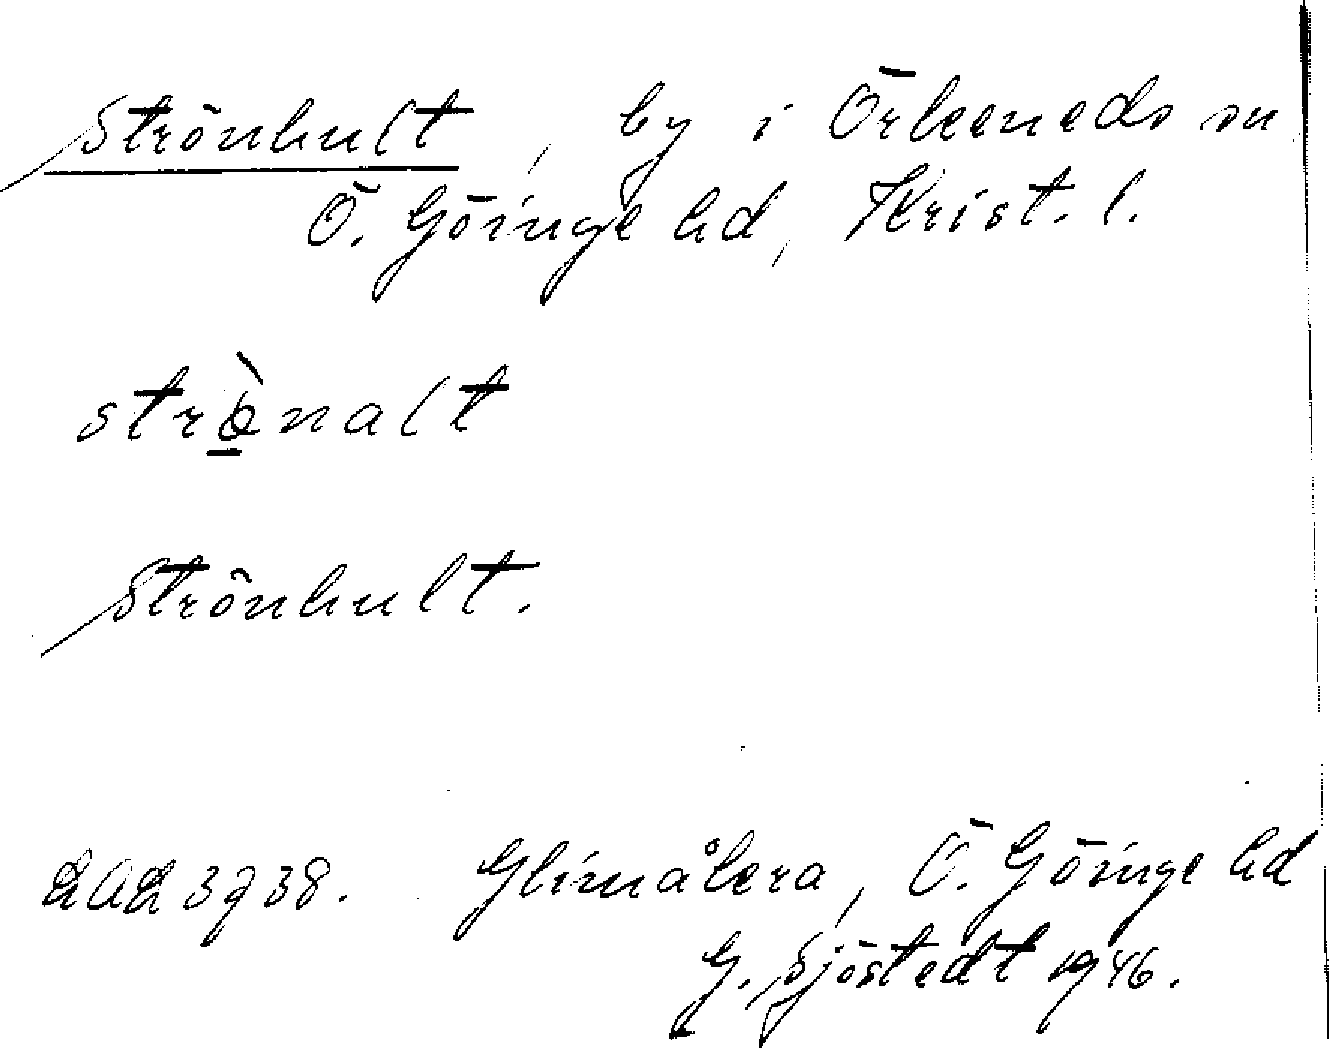 Strönhult, by i Örkeneds sn
Ö. Göinge hd, Krist. l.
strø̱̀nalt
Strönhult.
LAL 3738. Glimåkra, Ö. Göinge hd
G. Sjöstedt 1946.